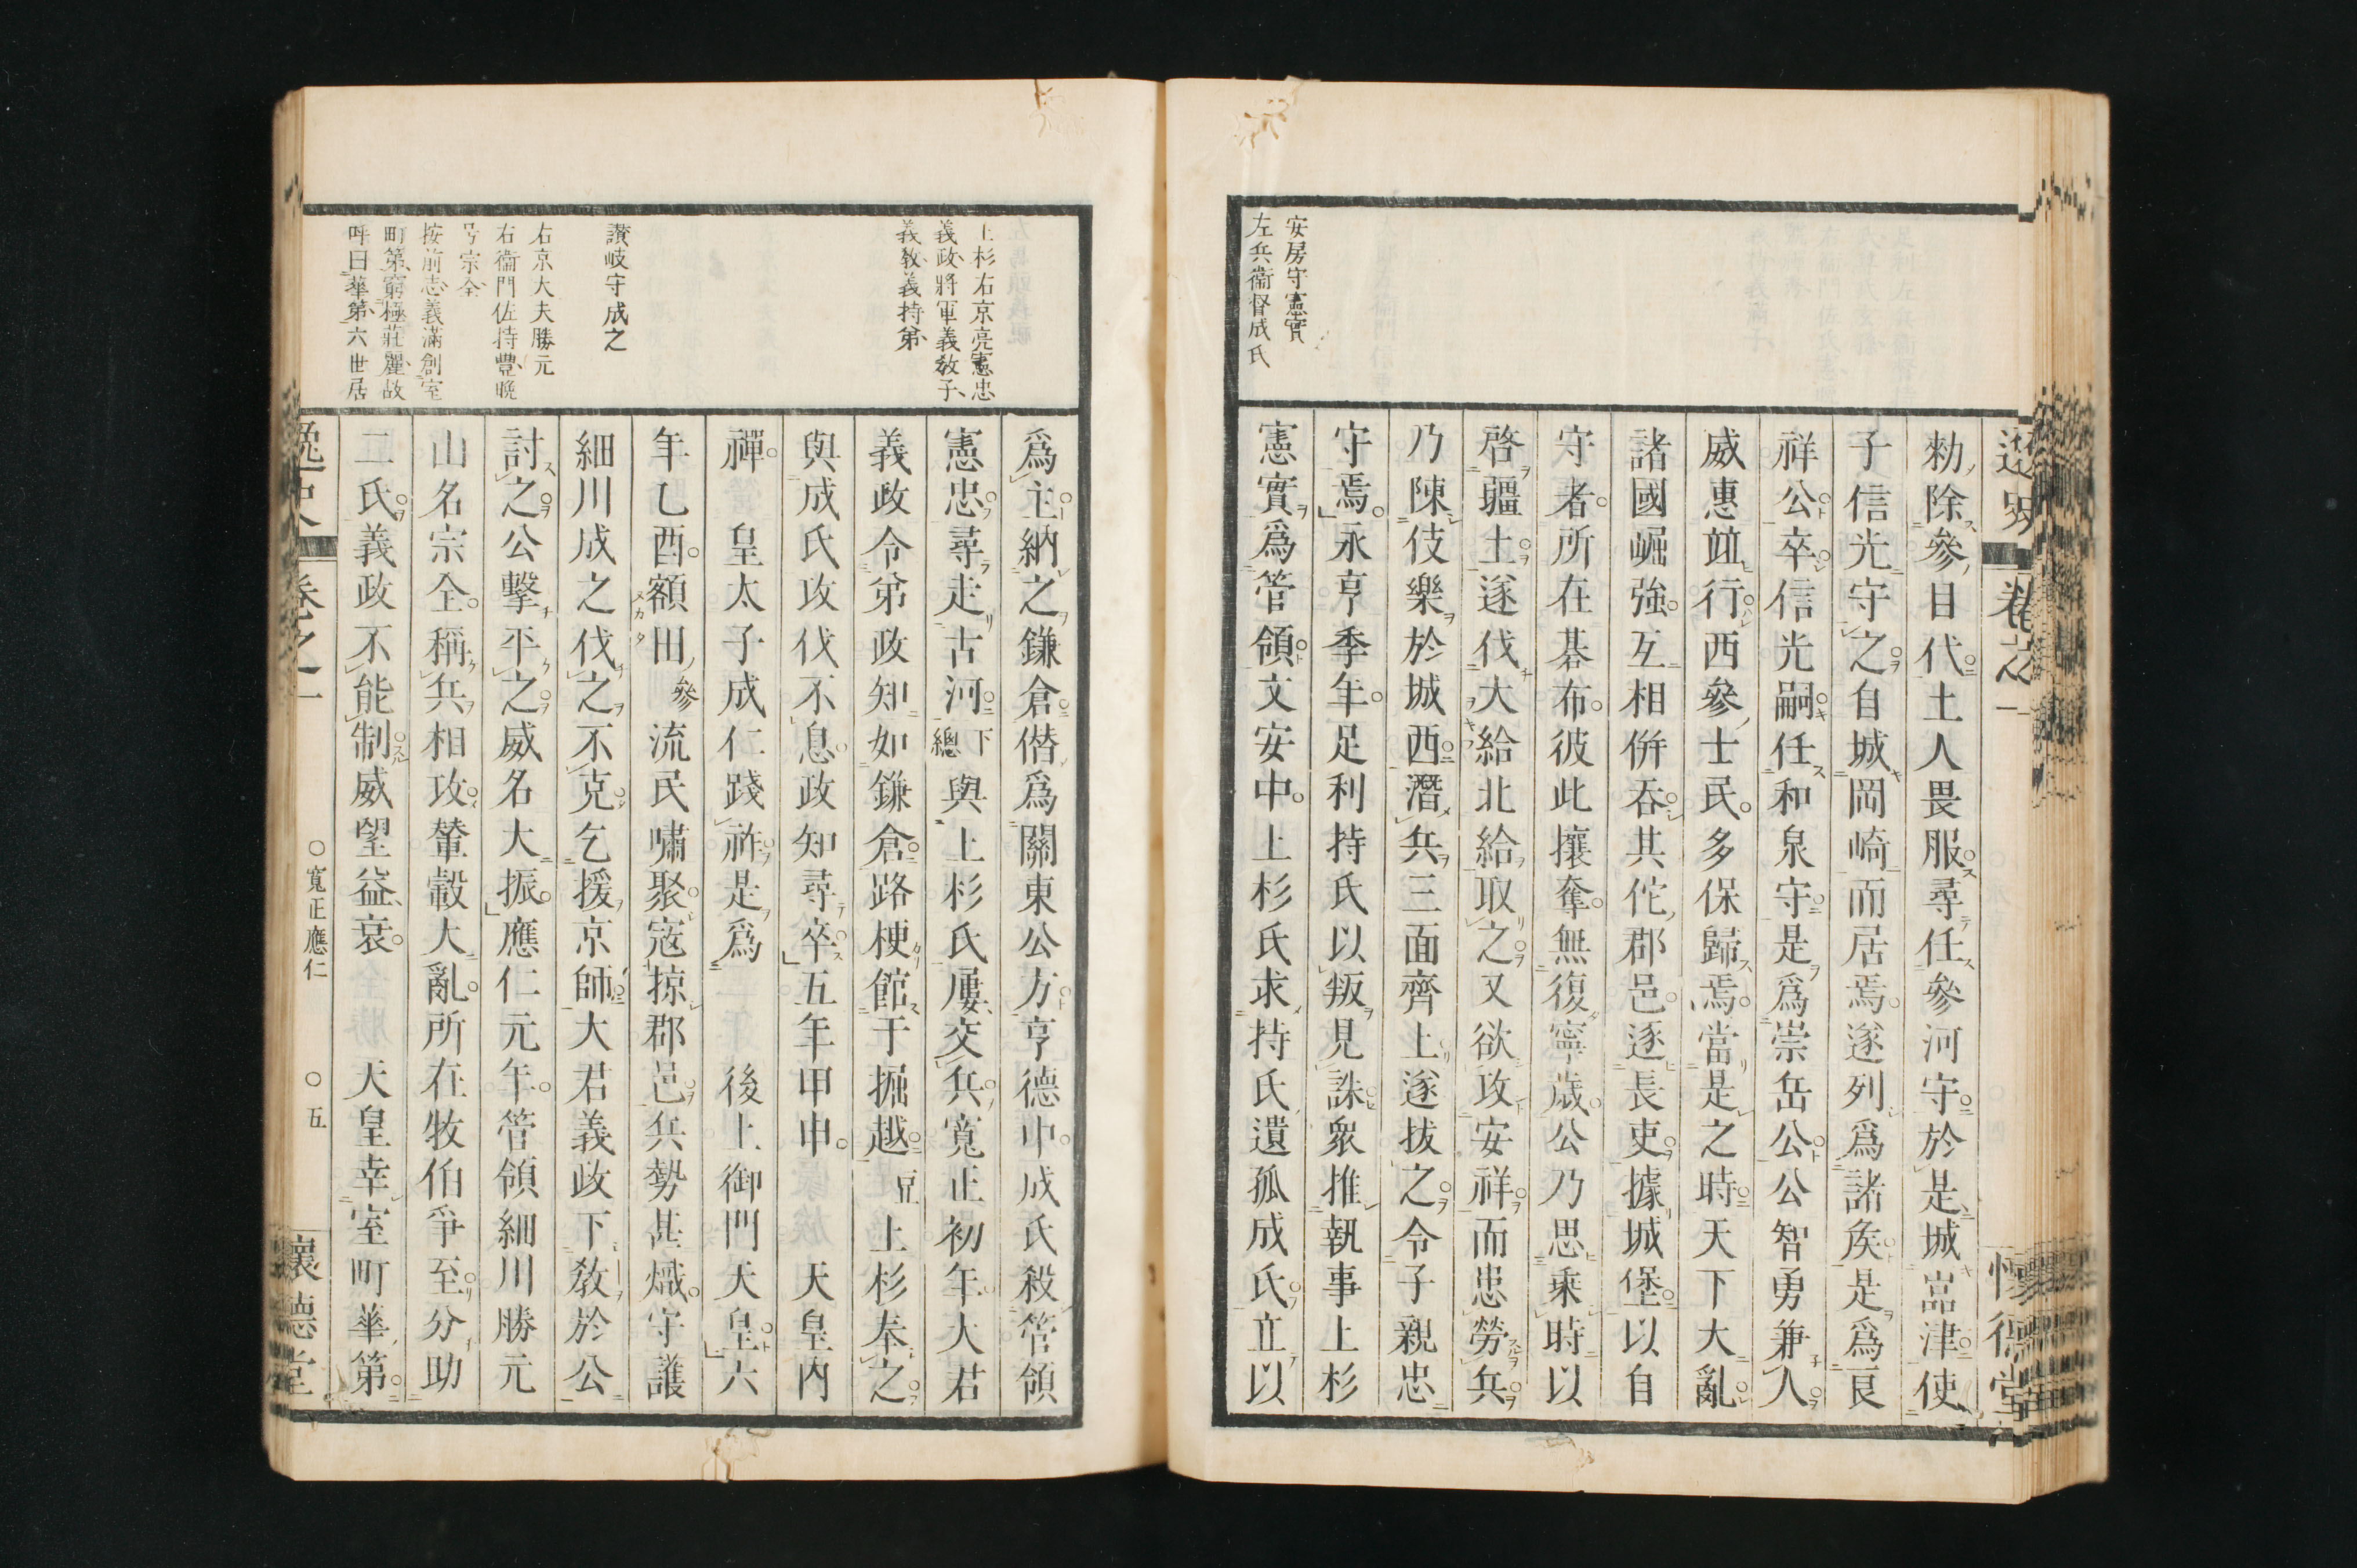 逸史
卷之一
懷德堂
安房守憲實
左兵衞督成氏
勑除參目代土人畏服尋任參河守於是城岩津使
子信光守之自城岡崎而居焉遂列爲諸矦是爲良
祥公卒信光嗣任和泉守是爲崇岳公公智勇兼人
威惠竝行西參士民多保歸焉當是之時天下大亂
諸國崛強互相併吞其佗郡邑逐長吏據城堡以自
守者所在碁布彼此攘奪無復寧歲公乃思乘時以
啓疆土遂伐大給北給取之又欲攻安祥而患勞兵
乃陳伎樂於城西潛兵三面齊上遂拔之令子親忠
守焉永享季年足利持氏以叛見誅衆推執事上杉
憲實爲管領文安中上杉氏求持氏遺孤成氏立以
上杉右京亮憲忠
義政將軍義教子
義教義持弟
讃岐守成之
右京大夫勝元
右衞門佐持豐晚
号宗全
按前志義滿創室
町第窮極莊麗故
呼曰華第六世居
爲主納之鎌倉僣爲關東公方享德中成氏殺管領
憲忠尋走古河下總與上杉氏屢交兵寬正初年大君
義政令弟政知如鎌倉路梗館于堀越豆上杉奉之
與成氏攻伐不息政知尋卒五年甲申天皇内
禪皇太子成仁踐祚是爲後土御門天皇六
年乙酉額田參流民嘯聚寇掠郡邑兵勢甚熾守護
細川成之伐之不克乞援京師大君義政下教於公
討之公擊平之威名大振應仁元年管領細川勝元
山名宗全稱兵相攻輦轂大亂所在牧伯爭至分助
二氏義政不能制威望益衰天皇幸室町華第
逸史
卷之一
○寬正應仁
○五
懷德堂